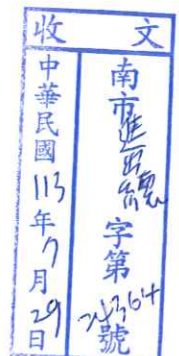 收文
南市進字第24364號
中華民國113年7月29日